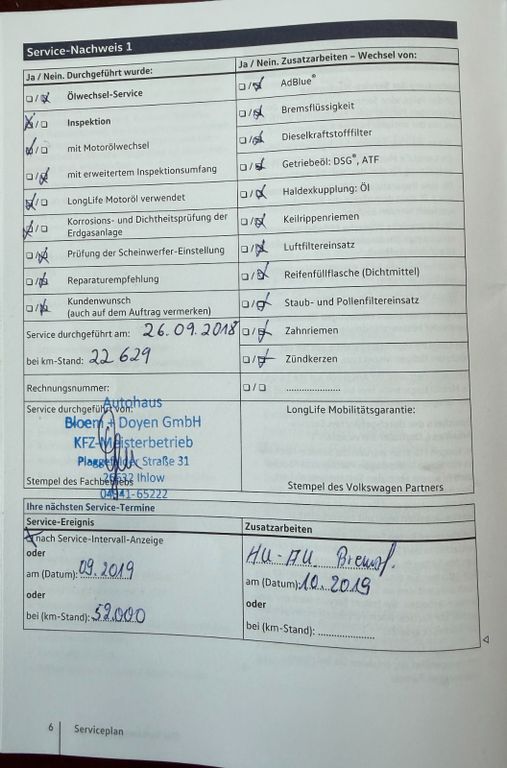 Service-Nachweis 1
Ja / Nein. Durchgeführt wurde:
Ölwechsel-Service
Inspektion
mit Motorölwechsel
mit erweitertem Inspektionsumfang
LongLife Motoröl verwendet
Korrosions- und Dichtheitsprüfung der
Erdgasanlage
Prüfung der Scheinwerfer-Einstellung
Reparaturempfehlung
Kundenwunsch
(auch auf dem Auftrag vermerken)
Service durchgeführt am: 26.09.2018
bei km-Stand: 22 629
Rechnungsnummer:
Service durchgeführt von:
Autohaus
Bloem + Doyen GmbH
KFZ-Meisterbetrieb
Plaggefelder Straße 31
26632 Ihlow
04941-65222
Stempel des Fachbetriebs
Ja / Nein. Zusatzarbeiten – Wechsel von:
AdBlue®
Bremsflüssigkeit
Dieselkraftstofffilter
Getriebeöl: DSG®, ATF
Haldexkupplung: Öl
Keilrippenriemen
Luftfiltereinsatz
Reifenfüllflasche (Dichtmittel)
Staub- und Pollenfiltereinsatz
Zahnriemen
Zündkerzen
LongLife Mobilitätsgarantie:
Stempel des Volkswagen Partners
Ihre nächsten Service-Termine
Service-Ereignis
nach Service-Intervall-Anzeige
oder
am (Datum): 09.2019
oder
bei (km-Stand): 52.000
Zusatzarbeiten
HU-AU Bremsf.
am (Datum): 10.2019
oder
bei (km-Stand):
6 Serviceplan